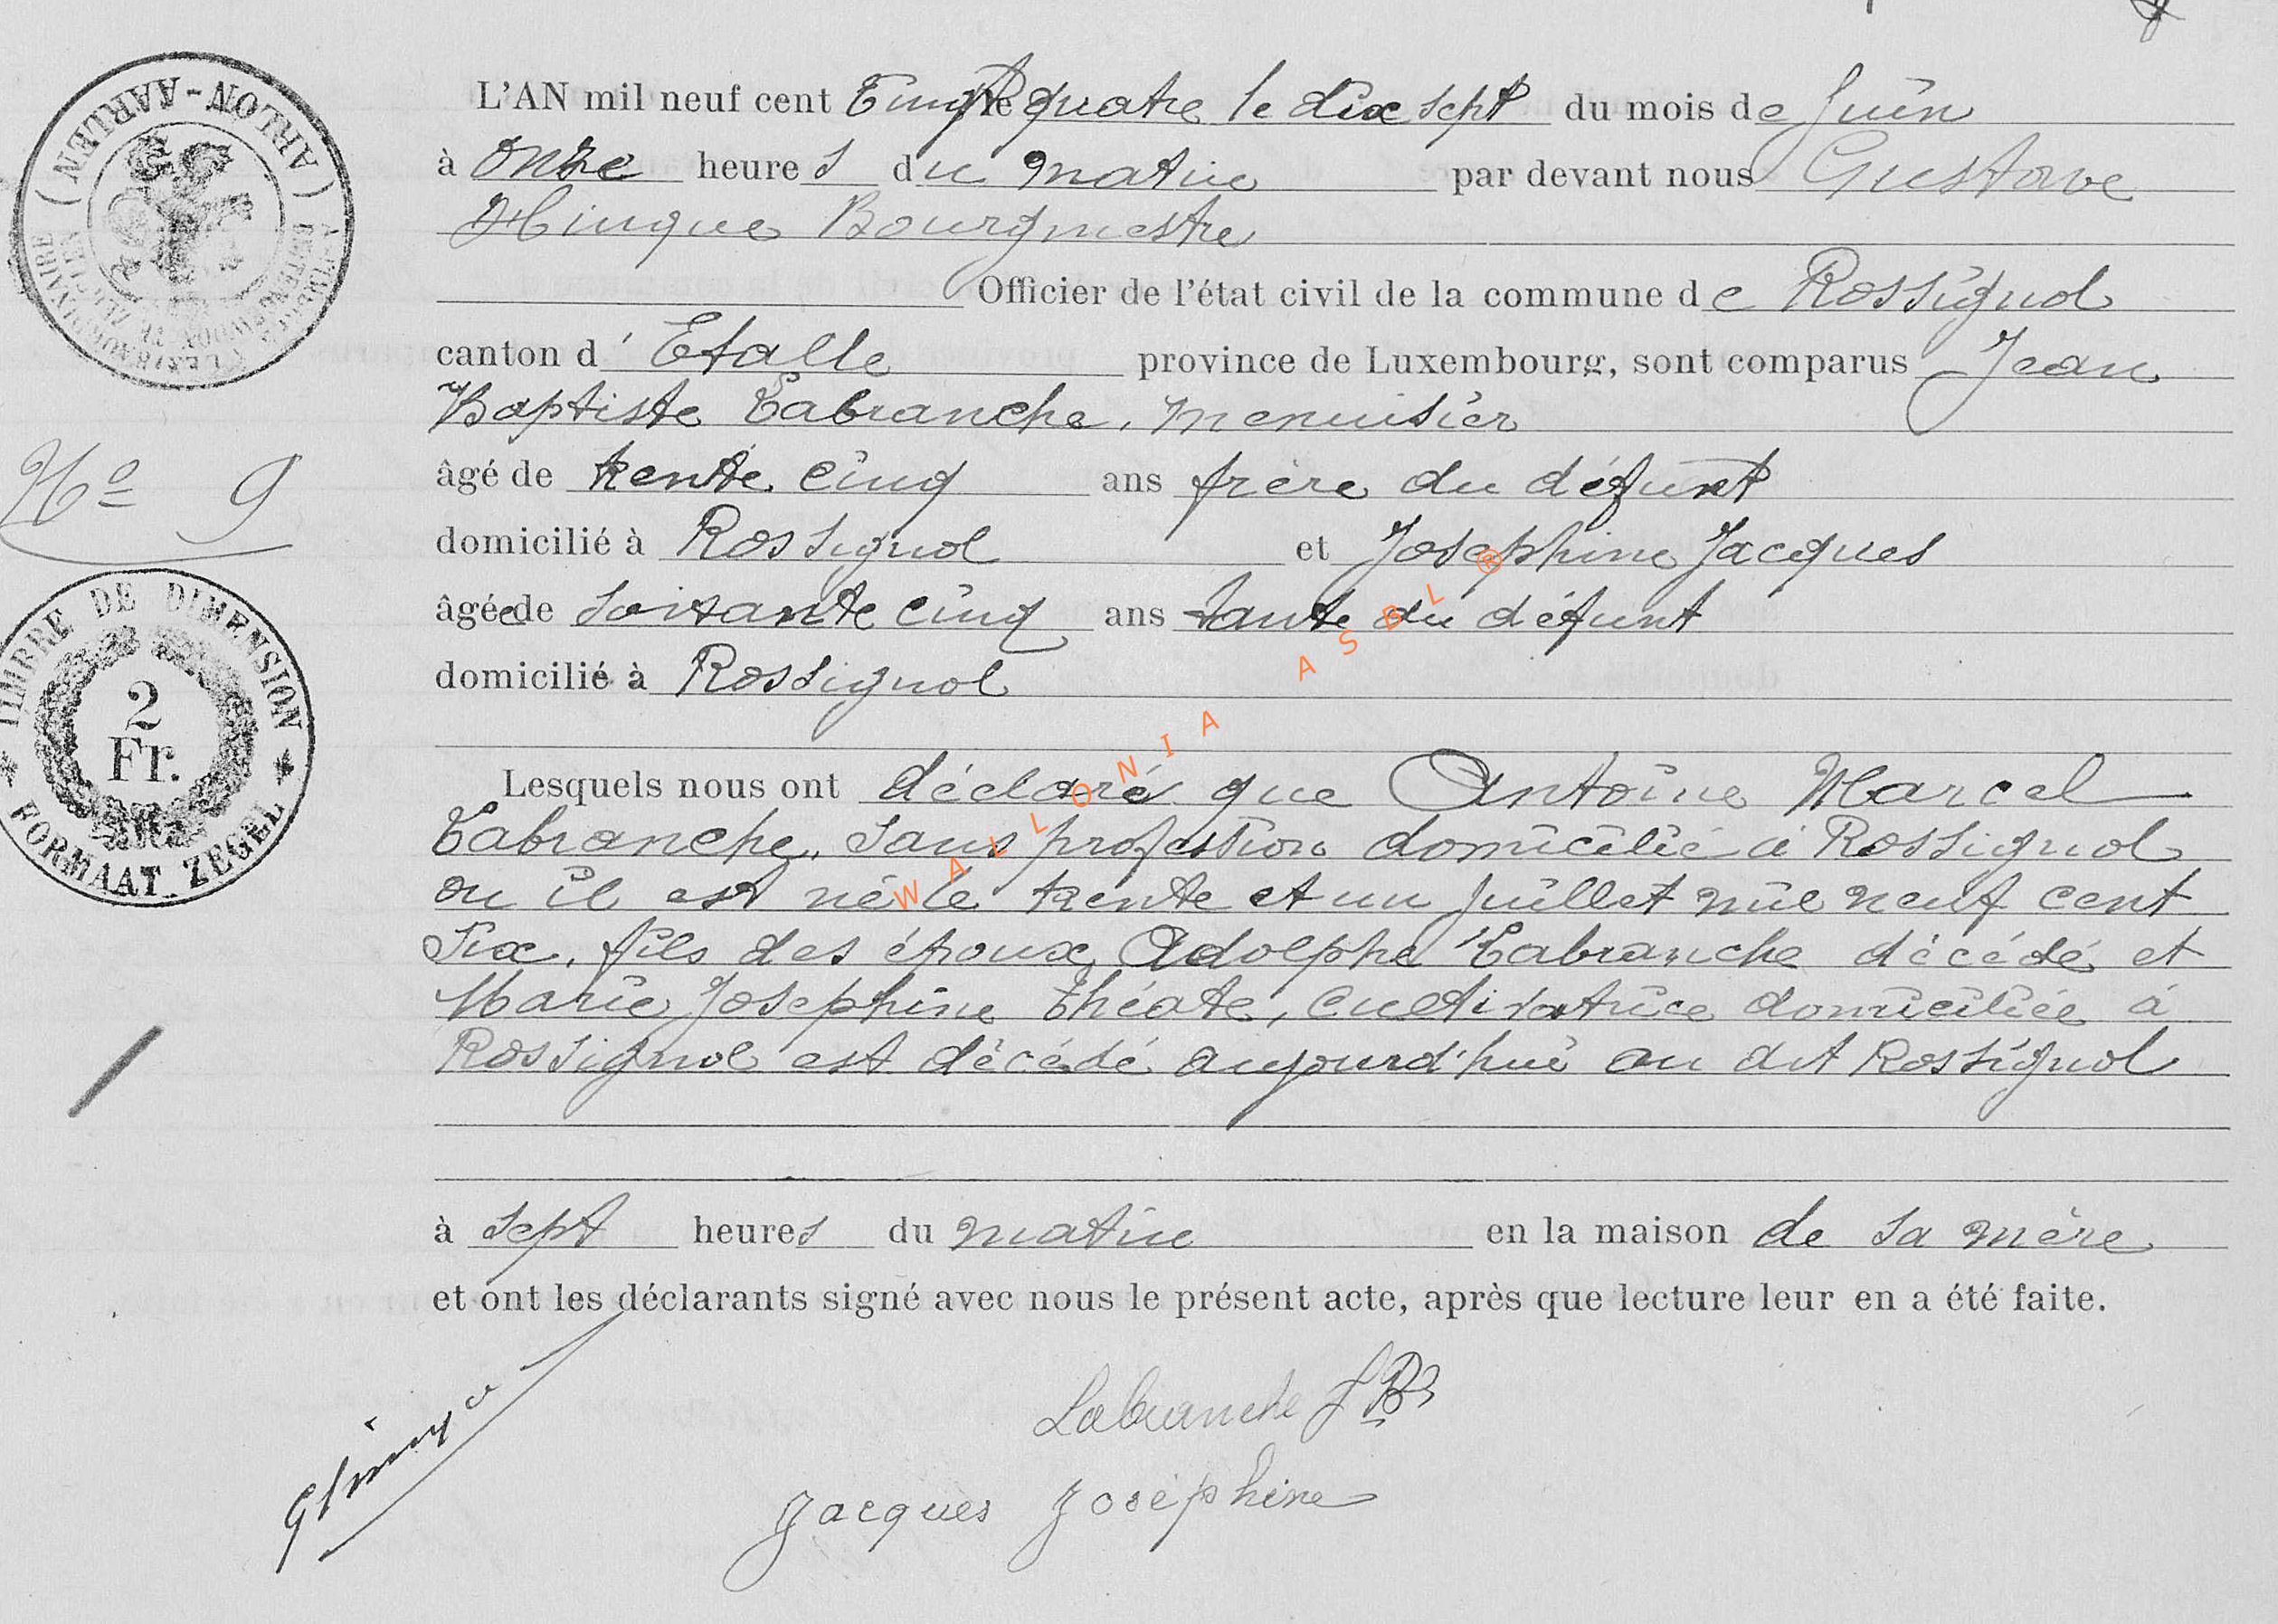 L'AN mil neuf cent Vingt quatre le dix sept du mois de Juin
à onze heures du matin par devant nous Gustave
Hinque Bourgmestre
Officier de l'état civil de la commune de Rossignol
canton d' Etalle province de Luxembourg, sont comparus Jean
Baptiste Labranche, menuisier
âgé de trente cinq ans frère du défunt
domicilié à Rossignol et Josephine Jacques
âgée de soixante cinq ans tante du défunt
domicilié à Rossignol
Lesquels nous ont déclaré que Antoine Marcel
Labranche, sans profession domicilié à Rossignol
ou il est né le trente et un Juillet mil neuf cent
six, fils des époux Adolphe Labranche décédé et
Marie Josephine Théate, cultivatrice domiciliée à
Rossignol est décédé aujourd'hui au dit Rossignol
à sept heures du matin en la maison de sa mère
et ont les déclarants signé avec nous le présent acte, après que lecture leur en a été faite.
Labranche JB
Jacques Joséphine
GHinque
ARLON-AARLEN
No 9
TIMBRE DE DIMENSION
2
Fr.
FORMAAT ZEGEL
WALLONIA ASBL ®